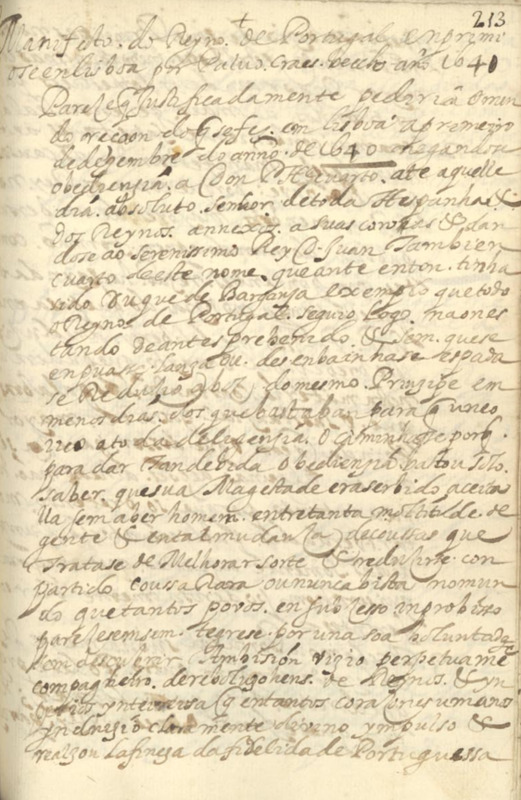 213
Manifesto. do Reyno. de Portugal ympremi
o se en lisboa por Paluo. Craes. veecko año 1641
Pareze q Justificadamente pederia o mun
do a reaon do q se fes. em lisboa a premeiro
de dezembre do anno. de 1640 negandose
obedzensia. a Don P.H. cuarto. ate aquelle
dia. absoluto. senhor de toda Hespanha &
dos Reynos. annexos. a suas coronas & dan
dose ao serenissimo Rey D. Juan Tambien
cuarto de este nome. que ante enton. tinha
sido Duque de Barganza exempio que todo
o Reyno. de Portugal. seguio logo. naones
tando de antes prebenido. & sem. que se
enpuase. lanza ou. desenbainhase espada
se Redusio a bos do mesmo. Prinzipe em
menos dias. dos que bastaban para q
a toda delixensia. o Caminase por
para dar tandebida obediensia bastou solo.
saber. que sua Magestade era serbido aceita
lla sem aber homem. entre tanta moltitude. de
gente & en tal mudanza de coussas que
tratase de Melhorar sorte & redusirse. con
partido coussa Rara ou nunca bista no mun
do que tantos pouos. en suo
paresesem sem. regrese. por una soa voluntade
sem descubrir Ambisión visio perpetuame
compagnero. de reboluzohens. de Reynos. &
q en tantos corazones umano
claramente divino ympulso &
realzou la fineza da fidelidade Portuguessa